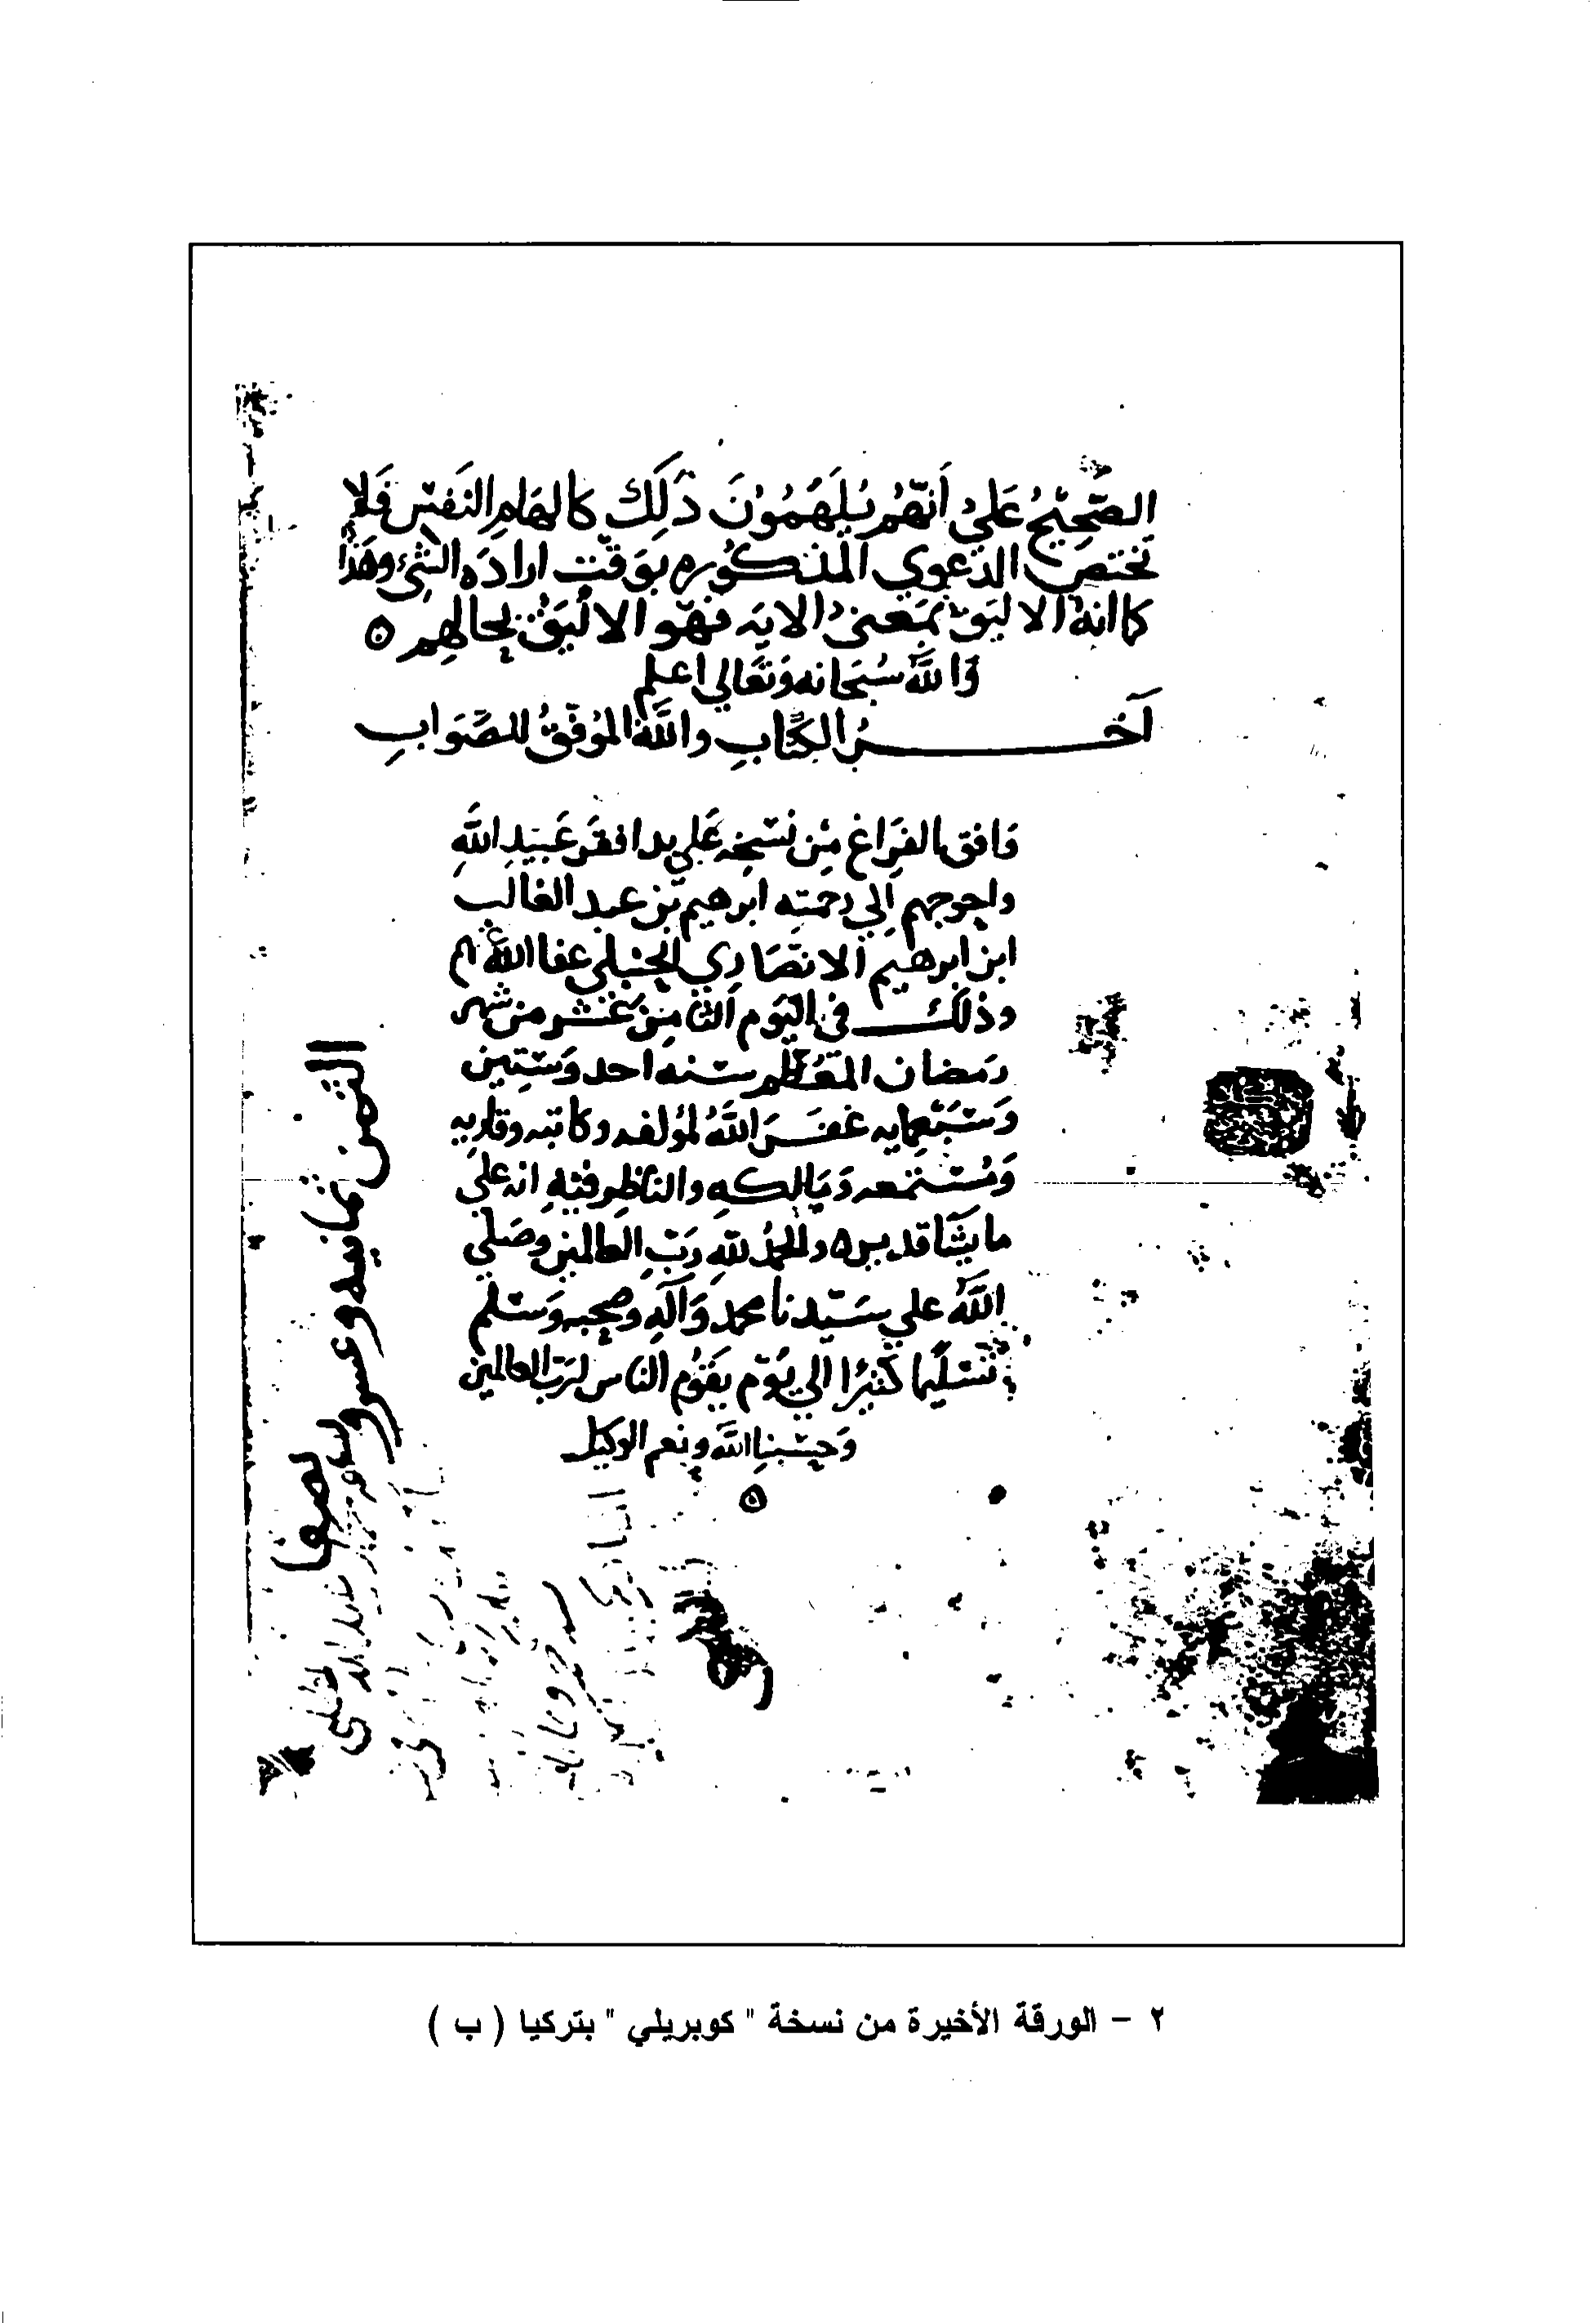 الصَّحِيْحُ عَلَيْ أَنّهُم يُلْهَمُوْنَ ذَلِكَ كالهَامِ النَفَسِ فَلا
تختص الدَعوي المذكوره بوَقتِ ارادَه الشيْء وهَذا
كما انهُ الا ليَق بمَعنيْ الايَه فهوَ الا ليَقُ بحالهِم ٥
وَاللهُ سُبحَانه وَتَعَالي اعلم
آخرُ الكِتابِ واللهُ الموُفقُ للصَوَابِ
وَافق الفرَاغ مِن نسَخِه عَلي يد افقَر عَبيدِ اللهِ
واحوجهم اِلي رحمته ابرهيم بن عبد الغالب
ابن ابرهيم الانصَارِي الحنبلي عفا الله
وذلك في اليَوم الثامِن عَشر من شهر
رمضان المعُظم سَنه احد وَسَتين
وَسَبَعمايه غفَرَ اللهُ لمؤلفه وكاتبه وقاريه
وَمُستمعه وَمَالِكهِ والناظِر فيْهِ انه عَليَ
ما يَشَا قدير ٥ والحمدُ للهِ رَبِّ العالمين وصَلي
اللهُ علي سَيّدنا محمد وَآلهِ وصَحبه وَسَلم
تسَليْما كثيرًا الي يَوْم يقوُم الناس لرَبِ العالمين
وَحسَبنا اللهُ ونعم الوكيل
٥
الثمن ثمانيه وعشرون
نصفا
٢ – الورقة الأخيرة من نسخة " كوبريلي " بتركيا ( ب )